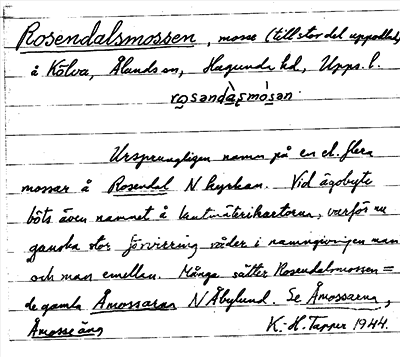 Rosendalsmossen, mosse (till stor del uppodlad)
å Kölva, Ålands sn, Hagunda hd, Upps. l.
rosəndàsmósən.
Ursprungligen namn på en el. flera
mossar å Rosendal N kyrkan. Vid ägobyte
böts även namnet å lantmäterikartorna, varför nu
ganska stor förvirring råder i namngivningen man
och man emellan. Många sätter Rosendalsmossen =
de gamla Åmossarna N Åbylund. Se Åmossarna,
Åmosseäng K.-H. Tapper 1944.